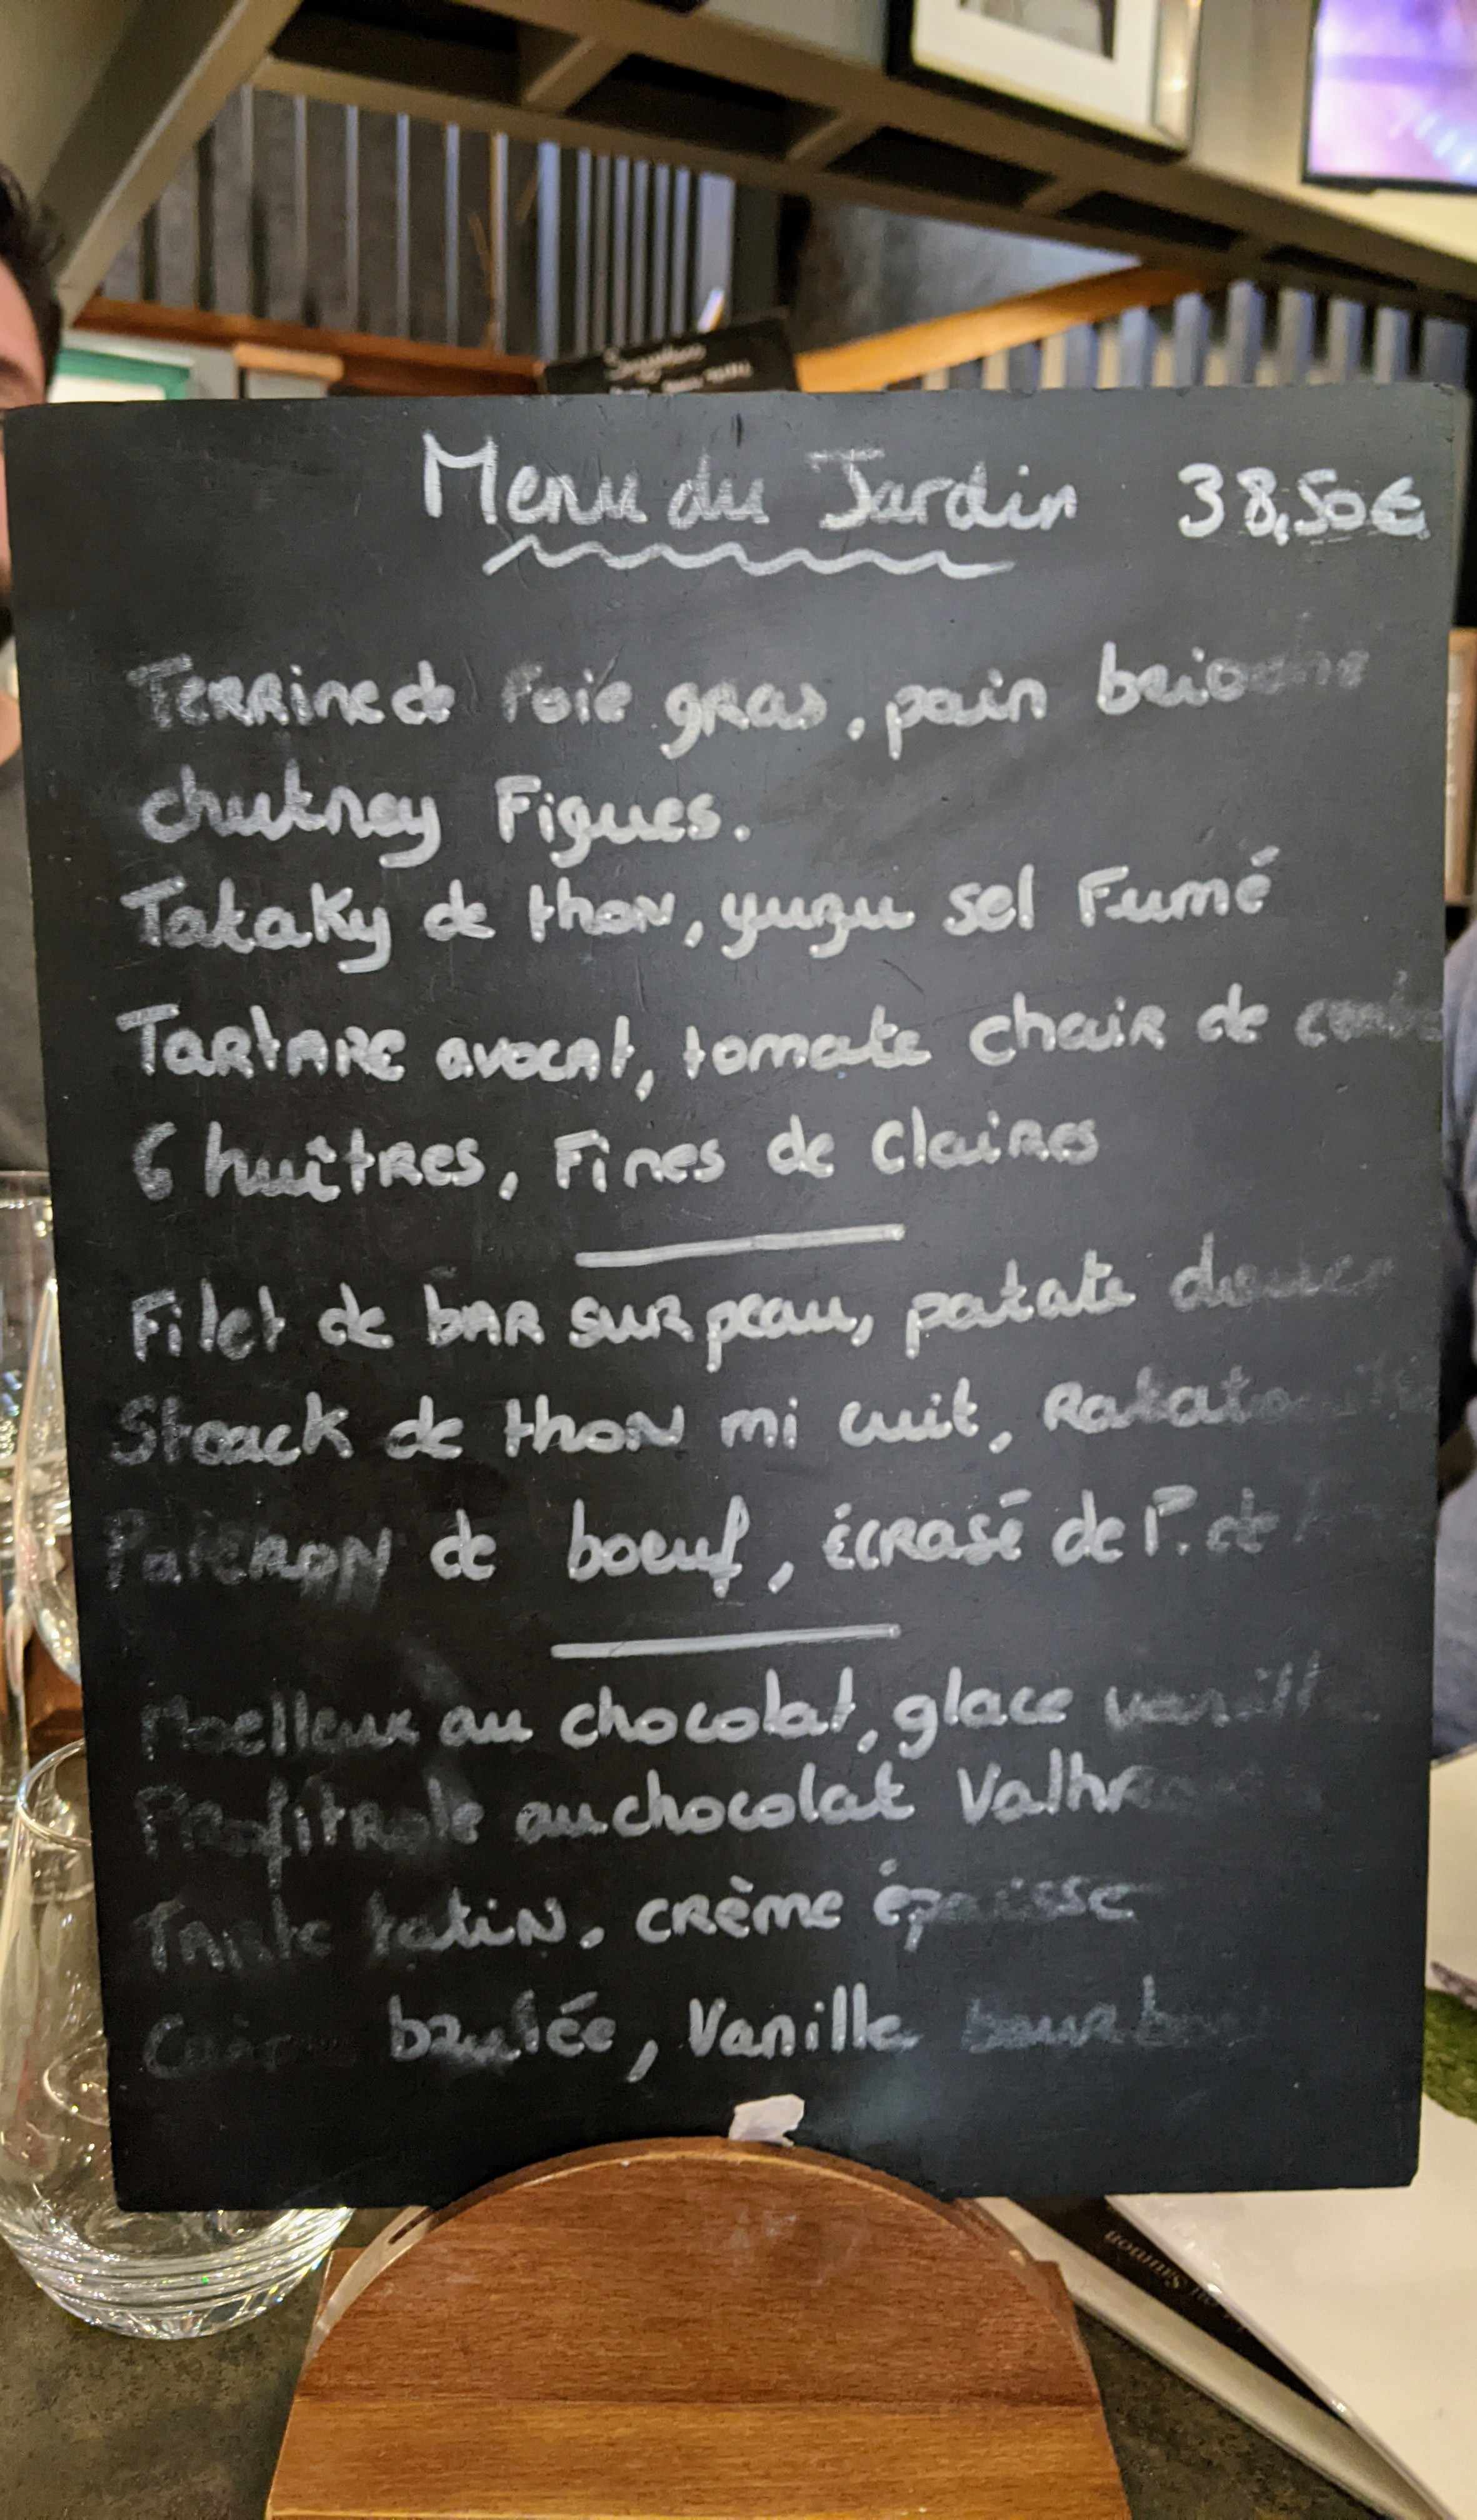 Menu du Jardin 38,50€
Terrine de Foie gras, pain
chutney Figues.
Tataky de thon, yuzu sel Fumé
Tartare avocat, tomate chair de
6 huîtres, Fines de Claires
Filet de bar sur peau, patate
Steack de thon mi cuit,
de boeuf, écrasé de P. de
Moelleux au chocolat, glace vanille
Profitrole au chocolat
Tarte tatin, crème épaisse
brulée, Vanille bourbon